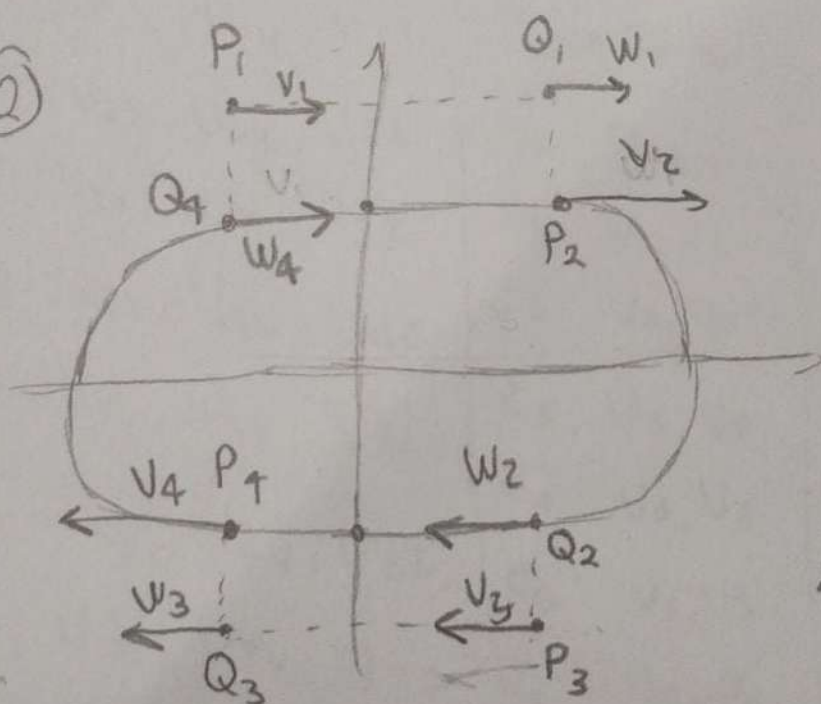 2)
P1 V1 Q1 W1
Q4 V W4 P2 V2
V4 P4 W2 Q2
W3 Q3 V3 P3